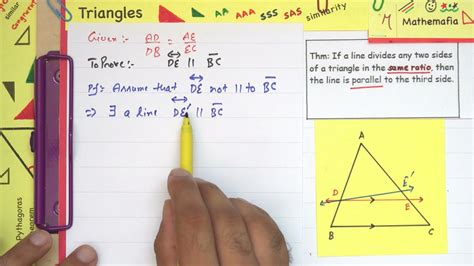 Triangles
AA AAA SSS SAS
similarity
Mathemafia
similar
Congruent
Given:- AD/DB = AE/EC
To Prove:- DE || BC
Pf:- Assume that DE not || to BC
⇒ ∃ a line DE' || BC
Thm: If a line divides any two sides
of a triangle in the same ratio, then
the line is parallel to the third side.
A
E'
D
E
B
C
Pythagoras
Theorem